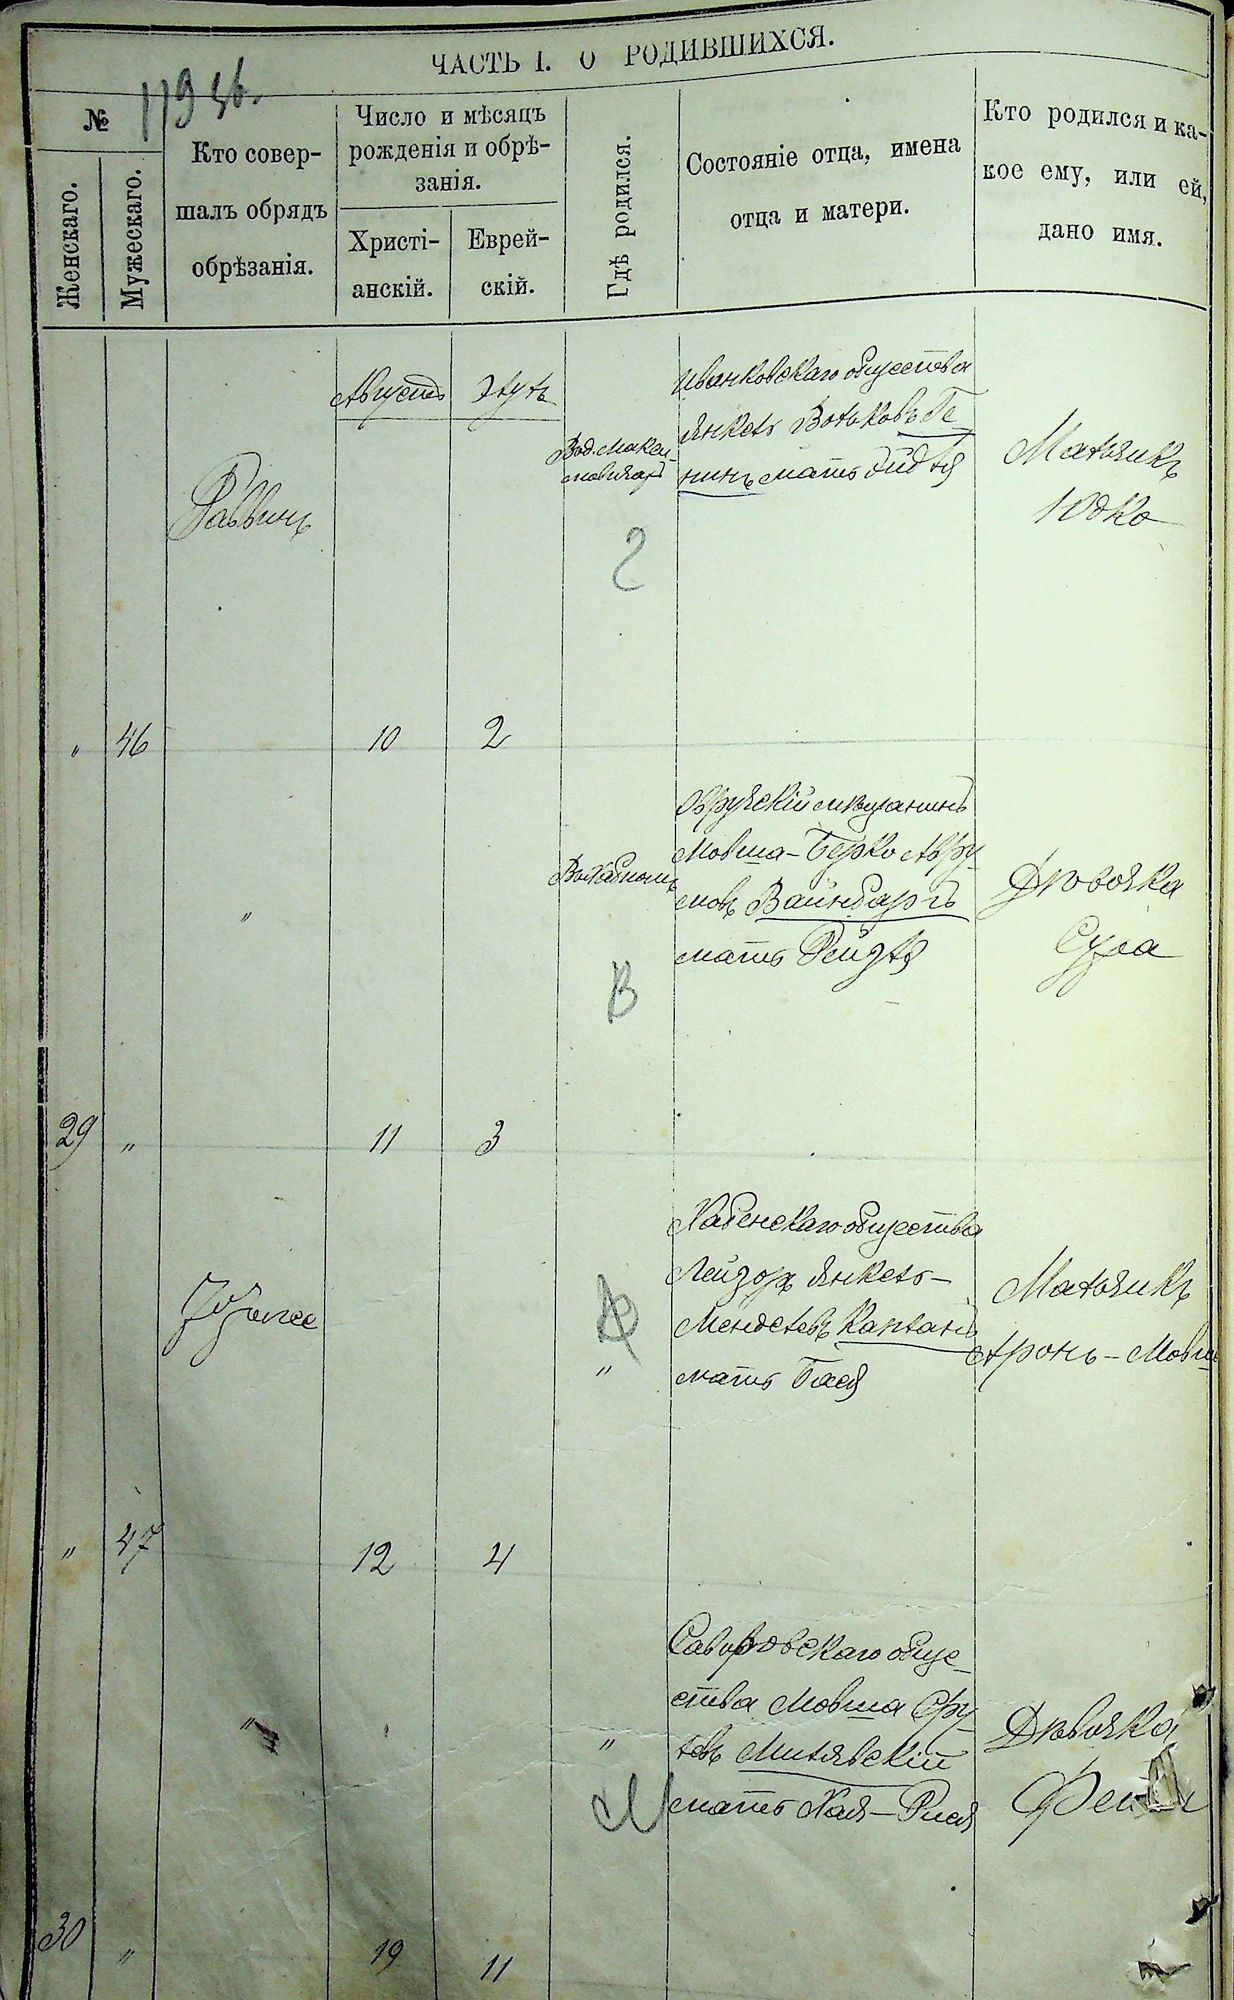 ЧАСТЬ I. О РОДИВШИХСЯ.
№
Женскаго.
Мужескаго.
Кто совер-
шалъ обрядъ
обрѣзанія.
Число и мѣсяцъ
рожденія и обрѣ-
занія.
Христі-
анскій.
Еврей-
скій.
Гдѣ родился.
Состояніе отца, имена
отца и матери.
Кто родился и ка-
кое ему, или ей,
дано имя.
Августъ
Элулъ
Раввинъ
Иванковскаго общества
Янкель Вольковъ Ге
нинъ мать Эйдля
Мальчикъ
Юдко
Г
" 46 10 2
"
Овручскій мѣщанинъ
Мовша-Берко Авру-
мовъ Вайнбаргъ
мать Рейзля
Дѣвочка
Сура
В
29 " 11 3
Хабенскаго общества
Лейзоръ Янкель-
Менделевъ Капланъ
мать Бася
Мальчикъ
Аронъ-Мовша
"
" 47 12 4
"
"
общe-
ства Мовша Сру-
левъ Милявскій
мать Хая-Рися
Дѣвочка
М
30 " 19 11